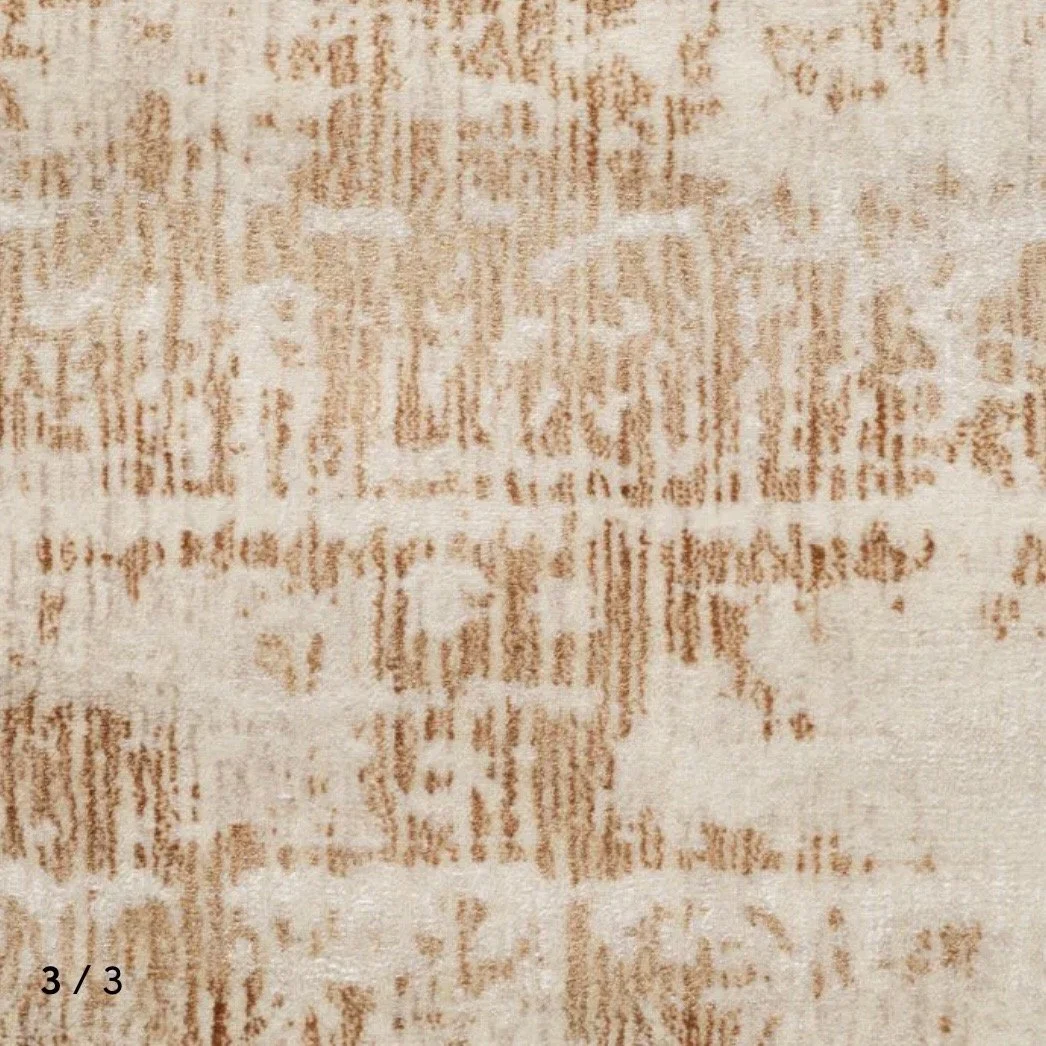 3 / 3